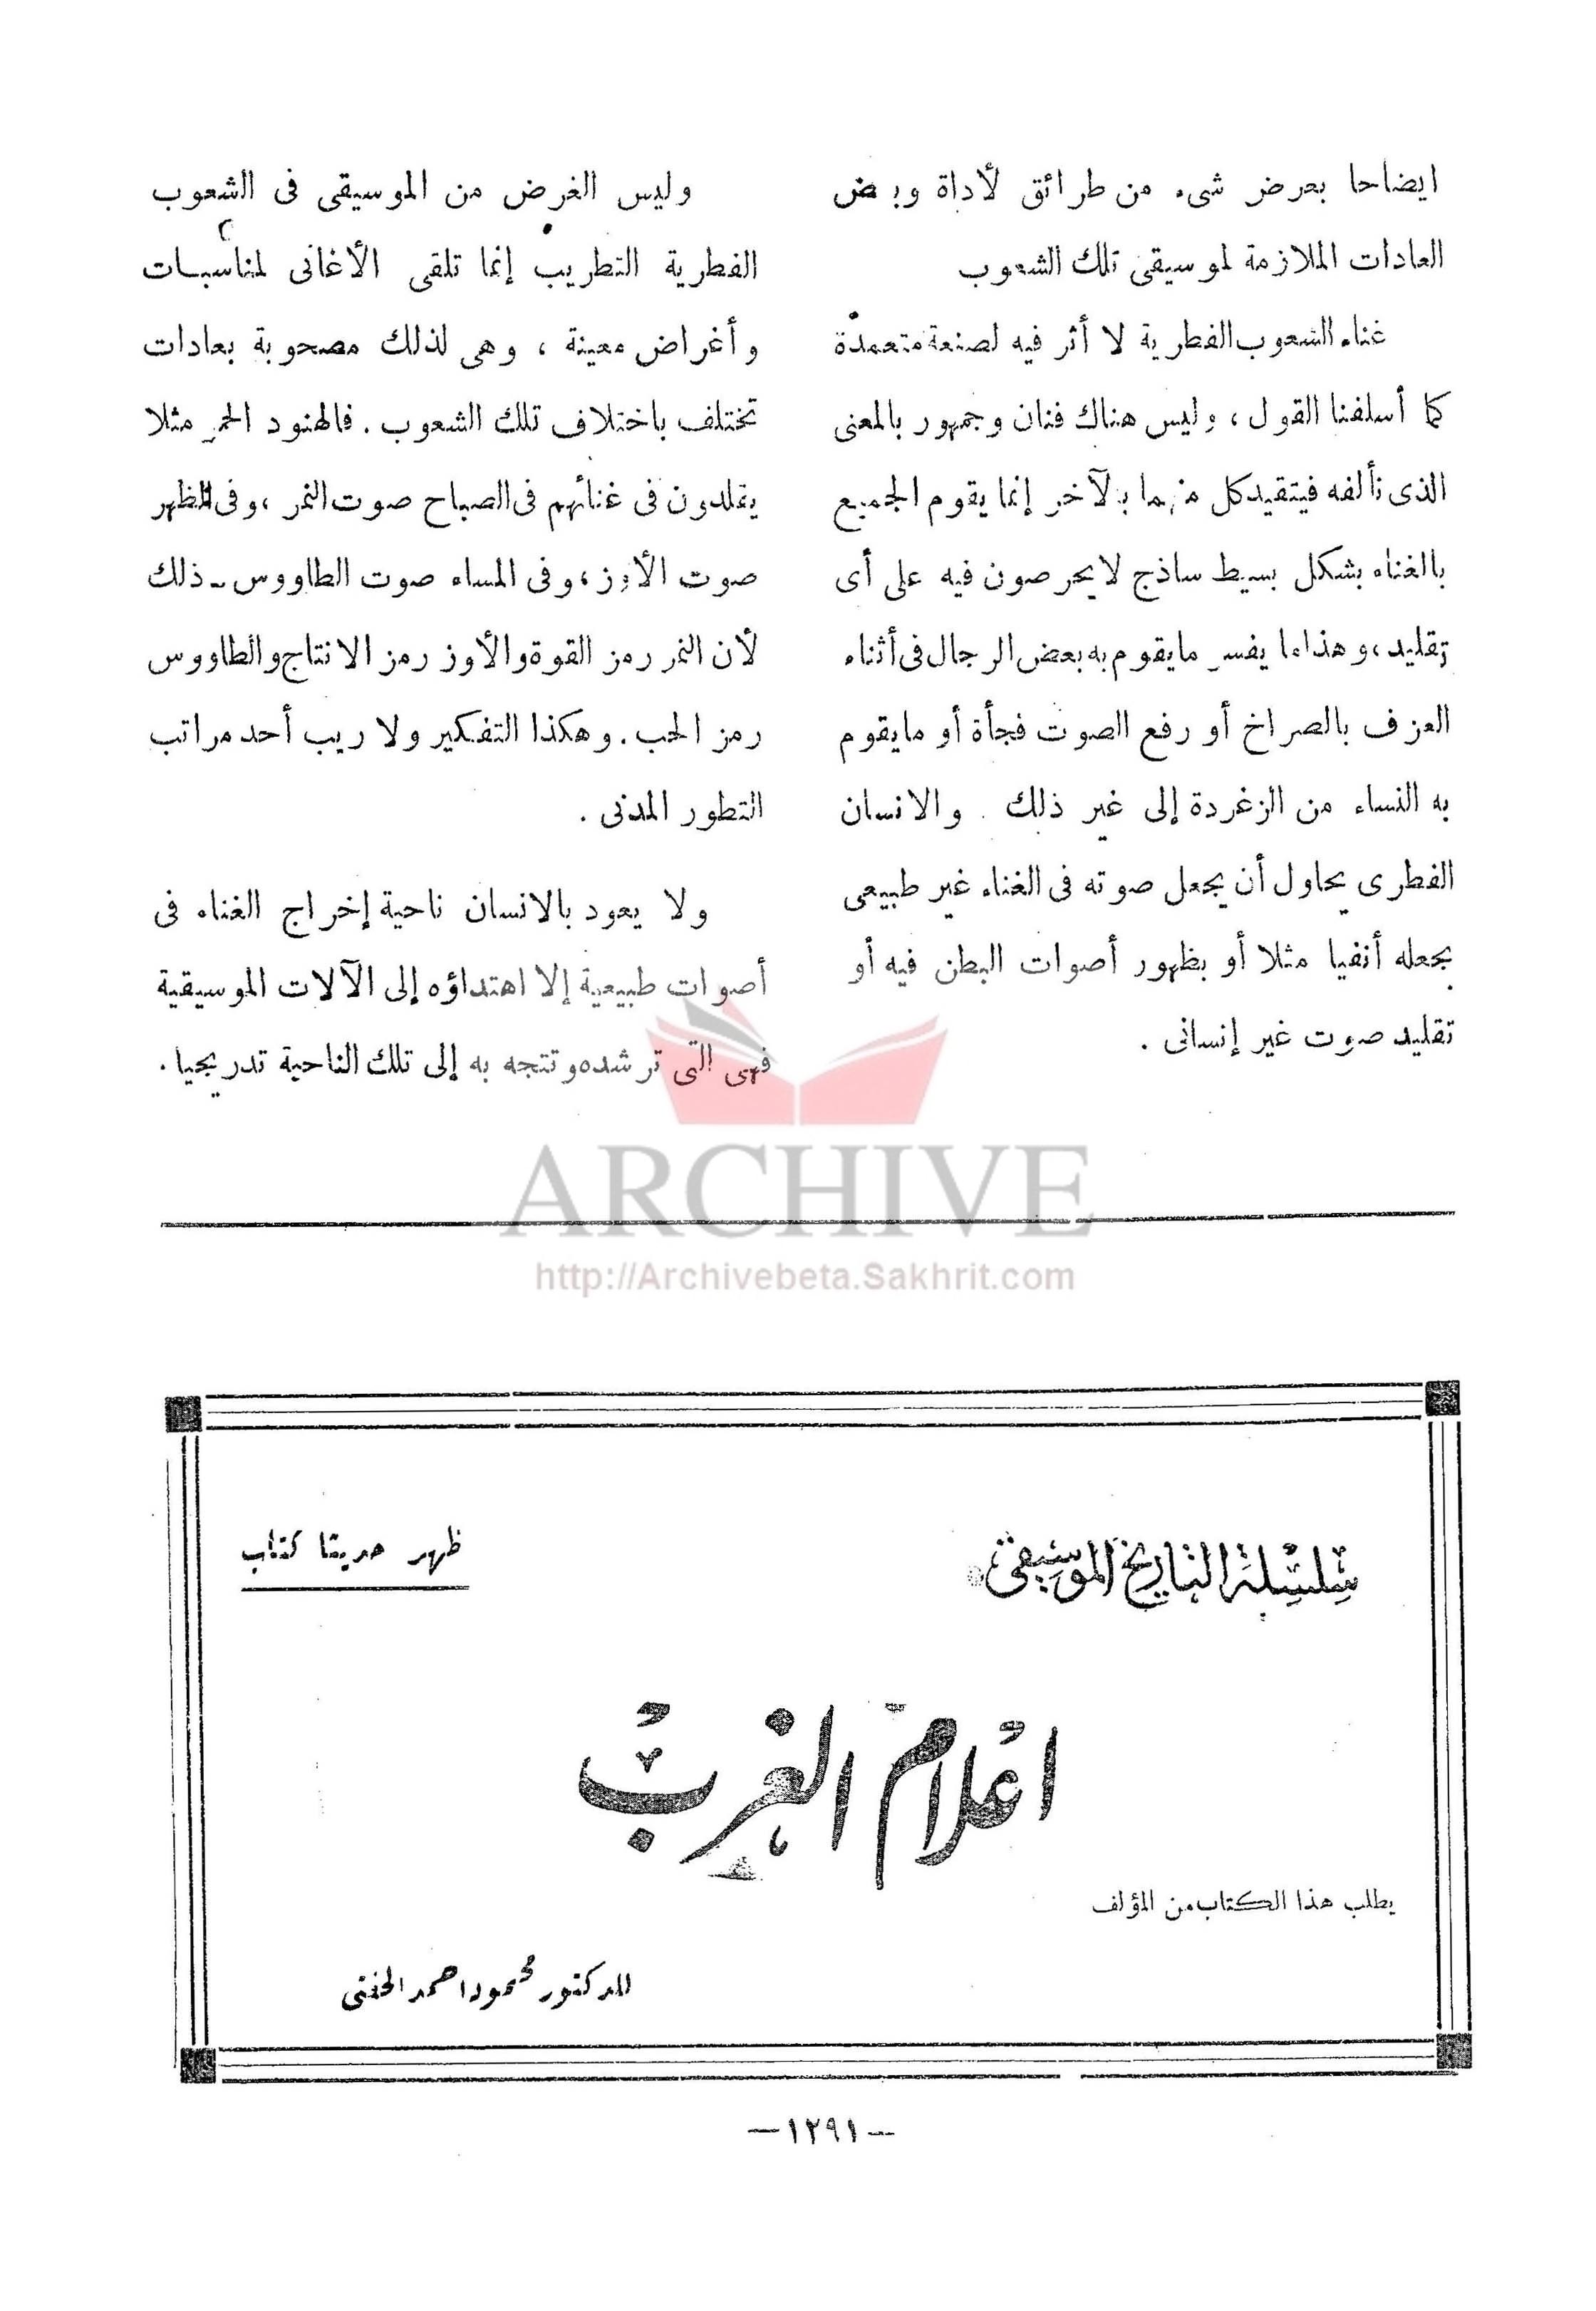 ايضاحا بعرض شىء من طرائق لأداة وبعض
العادات الملازمة لموسيقى تلك الشعوب
غناء الشعوب الفطرية لا أثر فيه لصنعة متعمدة
كما أسلفنا القول، وليس هناك فنان وجمهور بالمعنى
الذى نألفه فيتقيد كل منهما بالآخر إنما يقوم الجميع
بالغناء بشكل بسيط ساذج لا يحرصون فيه على أى
تقليد، وهذا ما يفسر ما يقوم به بعض الرجال فى أثناء
العزف بالصراخ أو رفع الصوت فجأة أو ما يقوم
به النساء من الزغردة إلى غير ذلك . والانسان
الفطرى يحاول أن يجعل صوته فى الغناء غير طبيعى
بجعله أنفيا مثلا أو بظهور أصوات البطن فيه أو
تقليد صوت غير إنسانى .
وليس الغرض من الموسيقى فى الشعوب
الفطرية التطريب إنما تلقى الأغانى لمناسبات
وأغراض معينة ، وهى لذلك مصحوبة بعادات
تختلف باختلاف تلك الشعوب . فالهنود الحمر مثلا
يقلدون فى غنائهم فى الصباح صوت النمر ، وفى الظهر
صوت الأوز ، وفى المساء صوت الطاووس - ذلك
لأن النمر رمز القوة والأوز رمز الانتاج والطاووس
رمز الحب . وهكذا التفكير ولا ريب أحد مراتب
التطور المدنى .
ولا يعود بالانسان ناحية إخراج الغناء فى
أصوات طبيعية إلا اهتداؤه إلى الآلات الموسيقية
فهى التى ترشده وتتجه به إلى تلك الناحية تدريجيا .
ARCHIVE
http://Archivebeta.Sakhrit.com
سلسلة التاريخ الموسيقى
ظهر حديثا كتاب
اعلام الغرب
يطلب هذا الكتاب من المؤلف
للدكتور محمود احمد الحفنى
— ١٢٩١ —